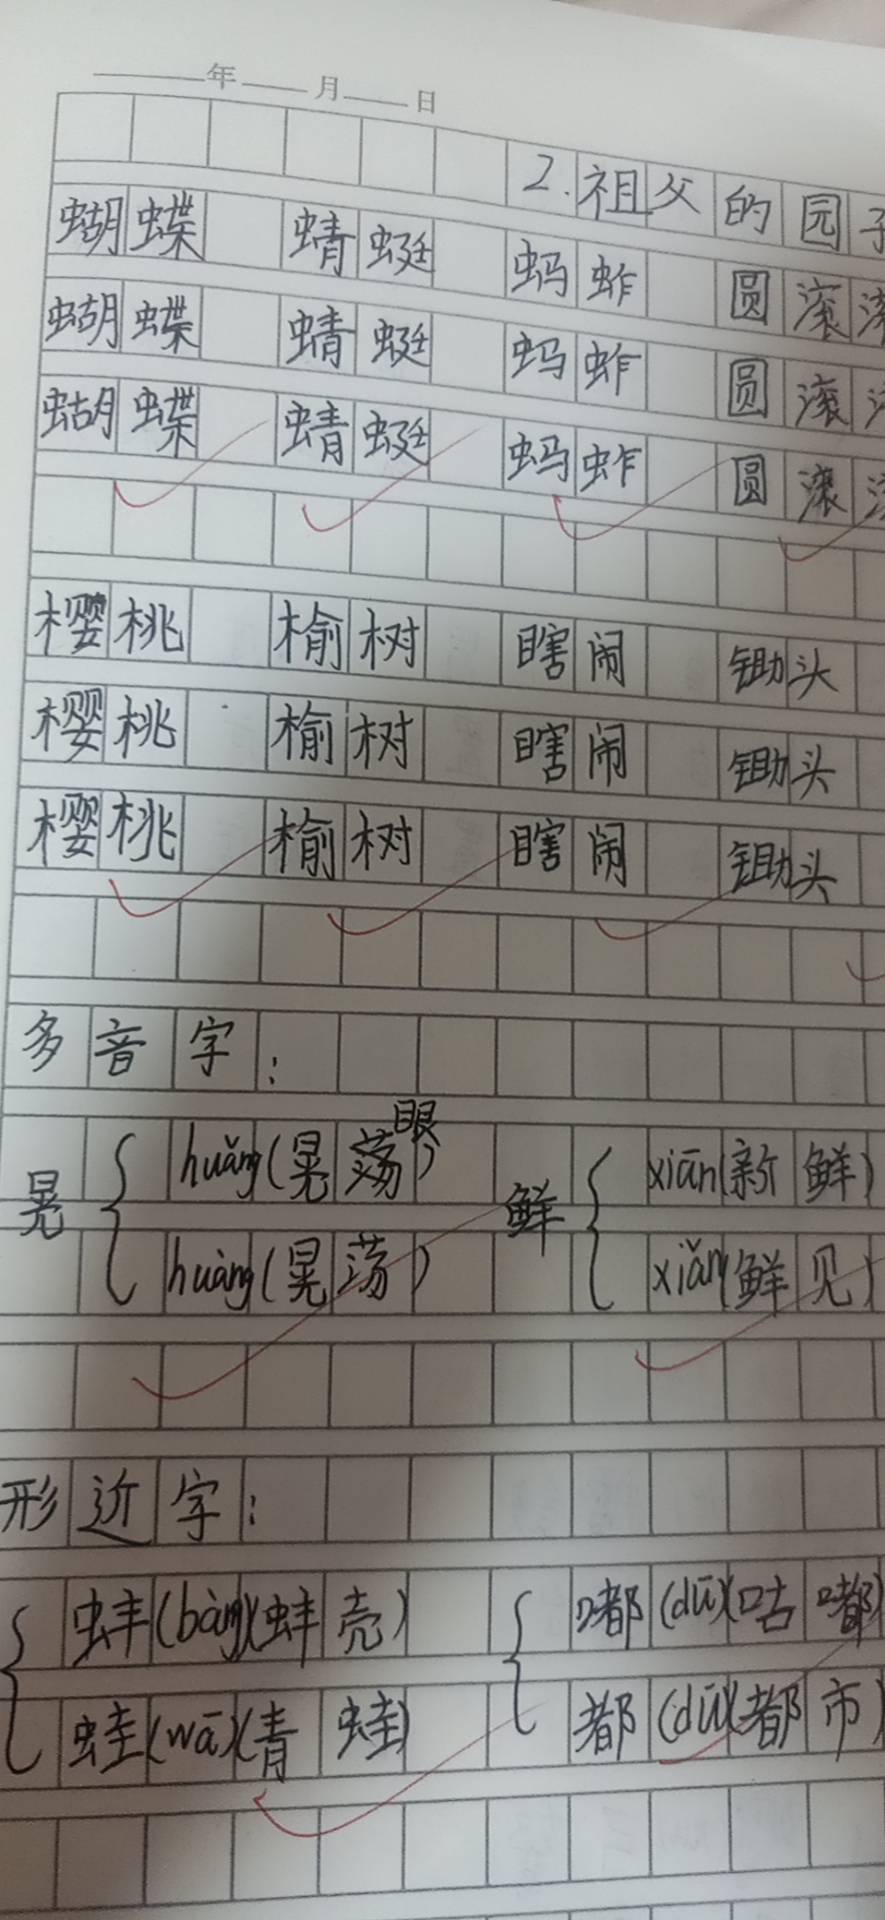 年 月 日
2.祖父的园子
蝴蝶 蜻蜓 蚂蚱 圆滚滚
蝴蝶 蜻蜓 蚂蚱 圆滚
蝴蝶 蜻蜓 蚂蚱 圆滚
樱桃 榆树 瞎闹 锄头
樱桃 榆树 瞎闹 锄头
樱桃 榆树 瞎闹 锄头
多音字：
晃 huǎng(晃眼) 鲜 xiān(新鲜)
huàng(晃荡) xiǎn(鲜见)
形近字：
蚌(bàng)(蚌壳) 嘟(dū)(咕嘟)
蛙(wā)(青蛙) 都(dū)(都市)